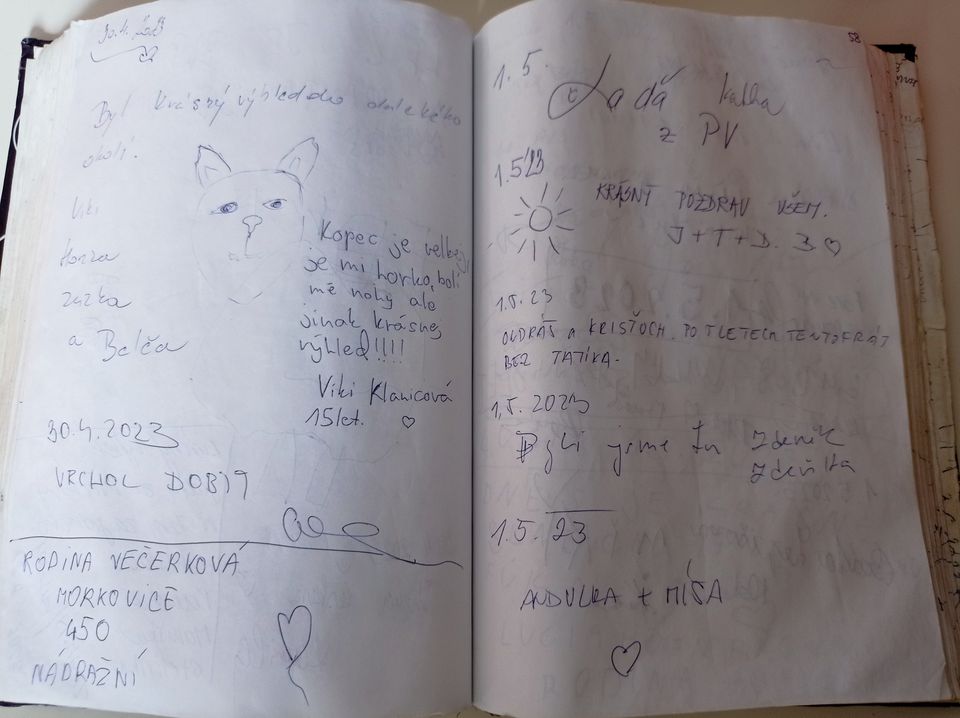 30.4. 2023
Byl krásný výhled do dalekého
okolí.
Viki
Honza
zuzka
a Belča
Kopec je velkej,
je mi horko, bolí
mě nohy ale
jinak krásnej
výhled!!!!
Viki Klanicová
15let.
30.4.2023
VRCHOL DOBIT
RODINA VEČERKOVÁ
MORKOVICE
450
NÁDRAŽNÍ
58
1.5.
Laďa
z PV
1.5'23
KRÁSNÝ POZDRAV VŠEM.
J+T+D. B
1.5. 23
ONDRÁŠ a KRISŤOCH. PO TENTOKRÁT
BEZ TATÍKA.
1,5. 2023
Byli jsme tu Zdeněk
Zdeňka
1.5. 23
ANDULKA + MÍŠA